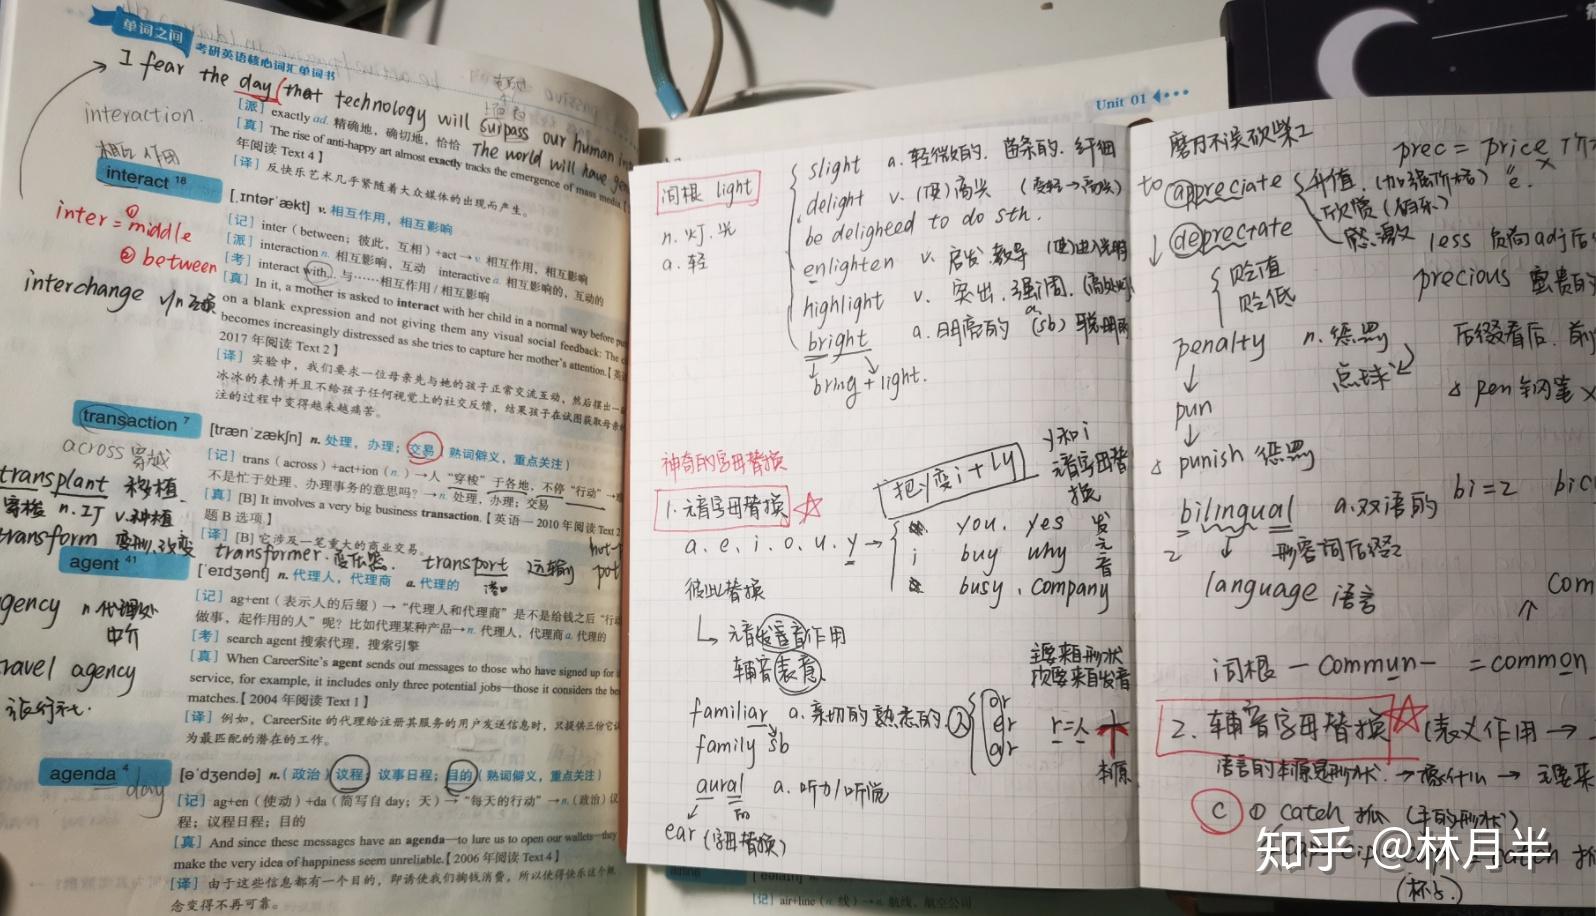 单词之间
考研英语核心词汇单词书
I fear the day that technology will surpass our human
The world will have
[派] exactly ad. 精确地，确切地，恰恰
[真] The rise of anti-happy art almost exactly tracks the emergence of mass media.
年阅读 Text 4】
[译] 反快乐艺术几乎紧随着大众媒体的出现而产生。
interaction
相互作用
interact 18
[ˌɪntərˈækt] v. 相互作用，相互影响
[记] inter（between；彼此，互相）+act→v. 相互作用，相互影响
[派] interaction n. 相互影响，互动 interactive a. 相互影响的，互动的
[考] interact with... 与……相互作用 / 相互影响
[真] In it, a mother is asked to interact with her child in a normal way before
on a blank expression and not giving them any visual social feedback: The
becomes increasingly distressed as she tries to capture her mother's attention.
2017 年阅读 Text 2】
[译] 实验中，我们要求一位母亲先与她的孩子正常交流互动，然后摆出一
冰冰的表情并且不给孩子任何视觉上的社交反馈，结果孩子在试图获取母亲
注的过程中变得越来越痛苦。
inter = ① middle
② between
interchange v/n 互换
transaction 7
[trænˈzækʃn] n. 处理，办理；交易（熟词僻义，重点关注）
[记] trans（across）+act+ion（n.）→人“穿梭”于各地，不停“行动”→
不是忙于处理、办理事务的意思吗？→n. 处理，办理；交易
[真] [B] It involves a very big business transaction.【英语一 2010 年阅读 Text 2
题 B 选项】
[译] [B] 它涉及一笔重大的商业交易。
across 穿越
transplant 移植
transform 变形.改变
transformer 变压器. transport 运输
港口
agent 41
[ˈeɪdʒənt] n. 代理人，代理商 a. 代理的
[记] ag+ent（表示人的后缀）→“代理人和代理商”是不是给钱之后“行动
做事，起作用的人”呢？比如代理某种产品→n. 代理人，代理商 a. 代理的
[考] search agent 搜索代理，搜索引擎
[真] When CareerSite's agent sends out messages to those who have signed up for
service, for example, it includes only three potential jobs—those it considers the
matches.【2004 年阅读 Text 1】
[译] 例如，CareerSite 的代理给注册其服务的用户发送信息时，只提供三份它
为最匹配的潜在的工作。
gency n 代理处
中介
ravel agency
旅行社.
agenda 4
day
[əˈdʒendə] n.（政治）议程；议事日程；目的（熟词僻义，重点关注）
[记] ag+en（使动）+da（简写自 day；天）→“每天的行动”→n.（政治）议
程；议程日程；目的
[真] And since these messages have an agenda—to lure us to open our wallets—they
make the very idea of happiness seem unreliable.【2006 年阅读 Text 4】
[译] 由于这些信息都有一个目的，即诱使我们掏钱消费，所以使得快乐这个概
念变得不再可靠。
Unit 01
词根 light
n. 灯. 光
a. 轻
slight a. 轻微的. 苗条的. 纤细
delight v. (使)高兴
be deligheed to do sth.
enlighten v. 启发. 教导
highlight v. 突出. 强调.
bright a. 明亮的 (sb) 聪明的
bring + light.
神奇的字母替换
1. 元音字母替换
a. e. i. o. u. y →
彼此替换
元音发音作用
辅音表意
把y变i + ly
y和i
元音字母替
换
you. yes
i buy why
busy. company
发
元
音
familiar a. 亲切的 熟悉的
family sb
人
or
er
ar
主要来自形状
次要来自发音
r=人
本原
aural a. 听力/听觉
ear (字母替换)
磨刀不误砍柴工
prec = price
to appreciate 升值.
欣赏
感激
depreciate
贬值
贬低
less 负向adj后
precious
penalty n. 惩罚
点球
pun
punish 惩罚
后缀看后.
pen 钢笔 ×
bilingual a. 双语的
bi=2
2 形容词后缀
language 语言
com
词根 — commun- = common
2. 辅音字母替换 (表义作用 →
语言的本原是形状
c ① catch 抓 (手的形状)
catch
(杯子)
[记] air+line（n. 线）→n. 航线，航空公司
知乎 @林月半